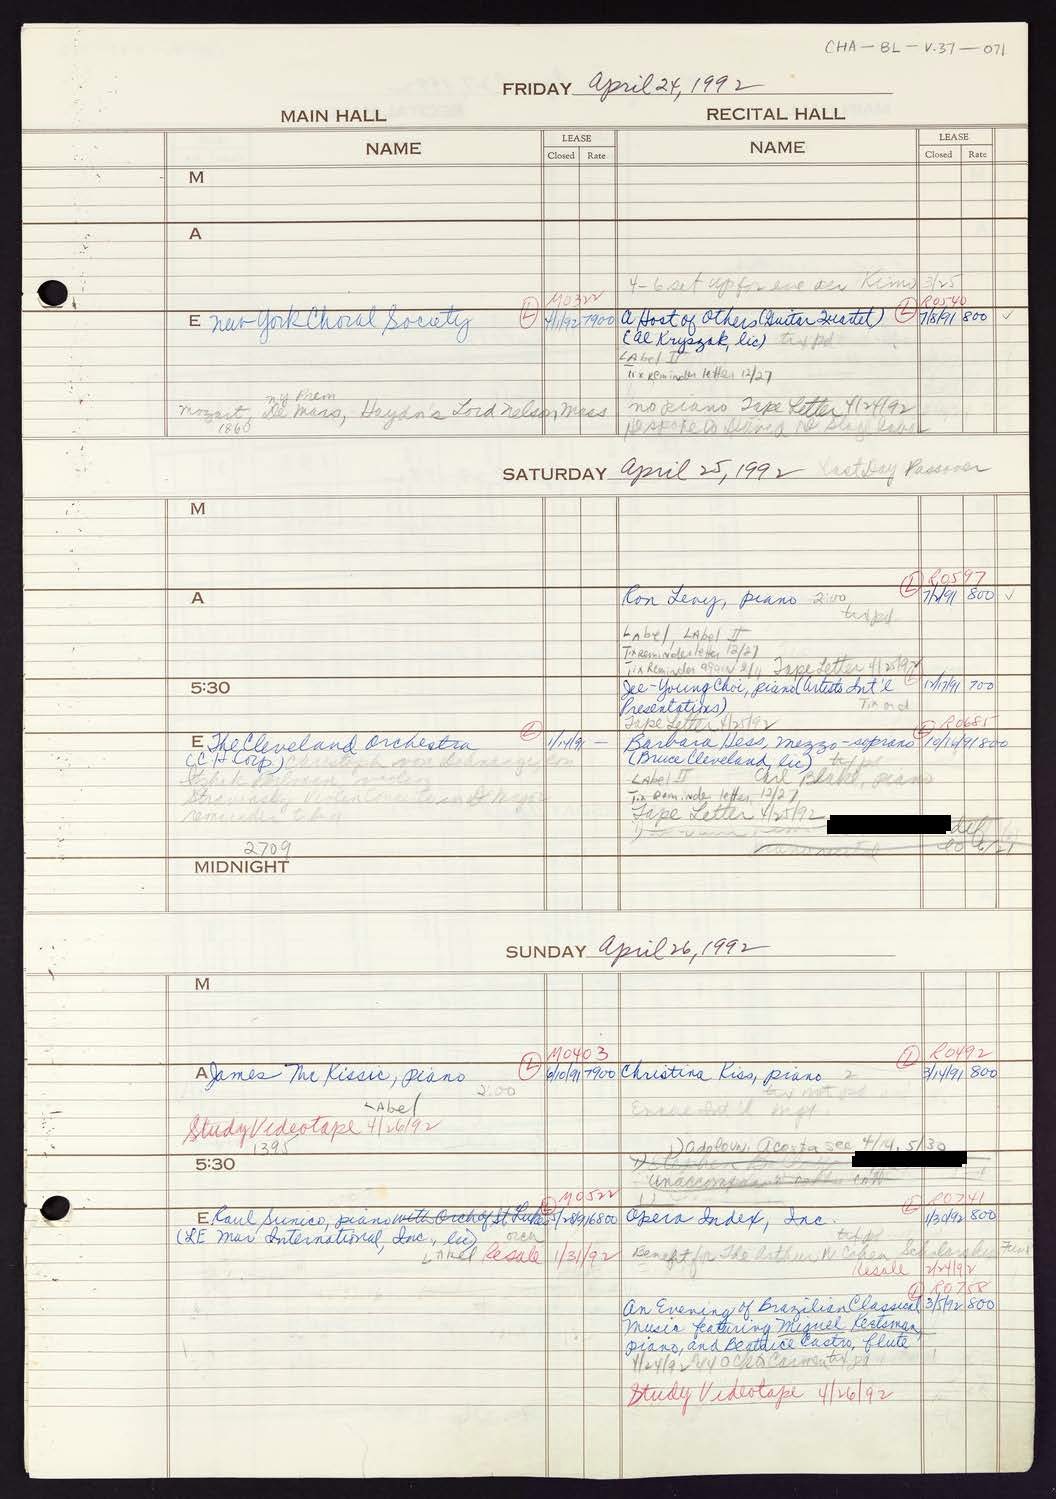 CHA-BL-V.37-071
FRIDAY April 24, 1992
MAIN HALL RECITAL HALL
NAME LEASE Closed Rate NAME LEASE Closed Rate
M
A
4-6 set up for eve 3/25
M0322 R0540
E New York Choral Society L 7900 A Host of Others (Guitar Quartet) L 7/8/91 800 ✓
(Al Kryszak, lic) tix pd
LAbel II
Tix Reminder letter 12/27
NY Prem
Mozart, De Mass, Haydn's Lord Nelson Mass no piano Tape Letter 4/24/92
1860
SATURDAY April 25, 1992 Last Day Passover
M
L R0597
A Ron Levy, piano 2:00 800 ✓
tix pd
LAbel, LAbel II
Tix Reminder letter 12/27
Tix Reminder again Tape Letter 4/25/92
5:30 Jee-Young Choi, piano (Artists Int'l 12/17/91 700
Presentations)
Tape Letter 4/25/92
L L R0685
E The Cleveland Orchestra 1/14/91 — Barbara Hess, mezzo-soprano 10/16/91 800
(C H Corp) Christoph von Dohnanyi, con (Bruce Cleveland, lic) tix pd
Itzhak Perlman, violin LAbel II Carl Blake, piano
Stravinsky Violin Concerto in D Major Tix Reminder letter 12/27
reminder Tape Letter 4/25/92
2709
MIDNIGHT
SUNDAY April 26, 1992
M
L M0403 L R0492
A James Mc Kissic, piano 6/10/91 7900 Christina Kiss, piano 2 3/14/91 800
2:00 tix not pd
LAbel
Study Videotape 4/26/92
1395
1) Adolovni Acosta see 4/14, 5/30
5:30
Unaccompan
L M0522 L R0741
E Raul Sunico, piano with Orch of St Luke 6800 Opera Index, Inc. 1/30/92 800
(LE Mar International, Inc., lic) orch tix pd
LAbel Resale 1/31/92 Benefit for The Arthur W Cohen Scholarship Fund
Resale 2/24/92
L R0758
An Evening of Brazilian Classical 3/5/92 800
Music featuring Miguel Kertsman,
piano, and Beatrice Castro, flute
4/24/92
Study Videotape 4/26/92